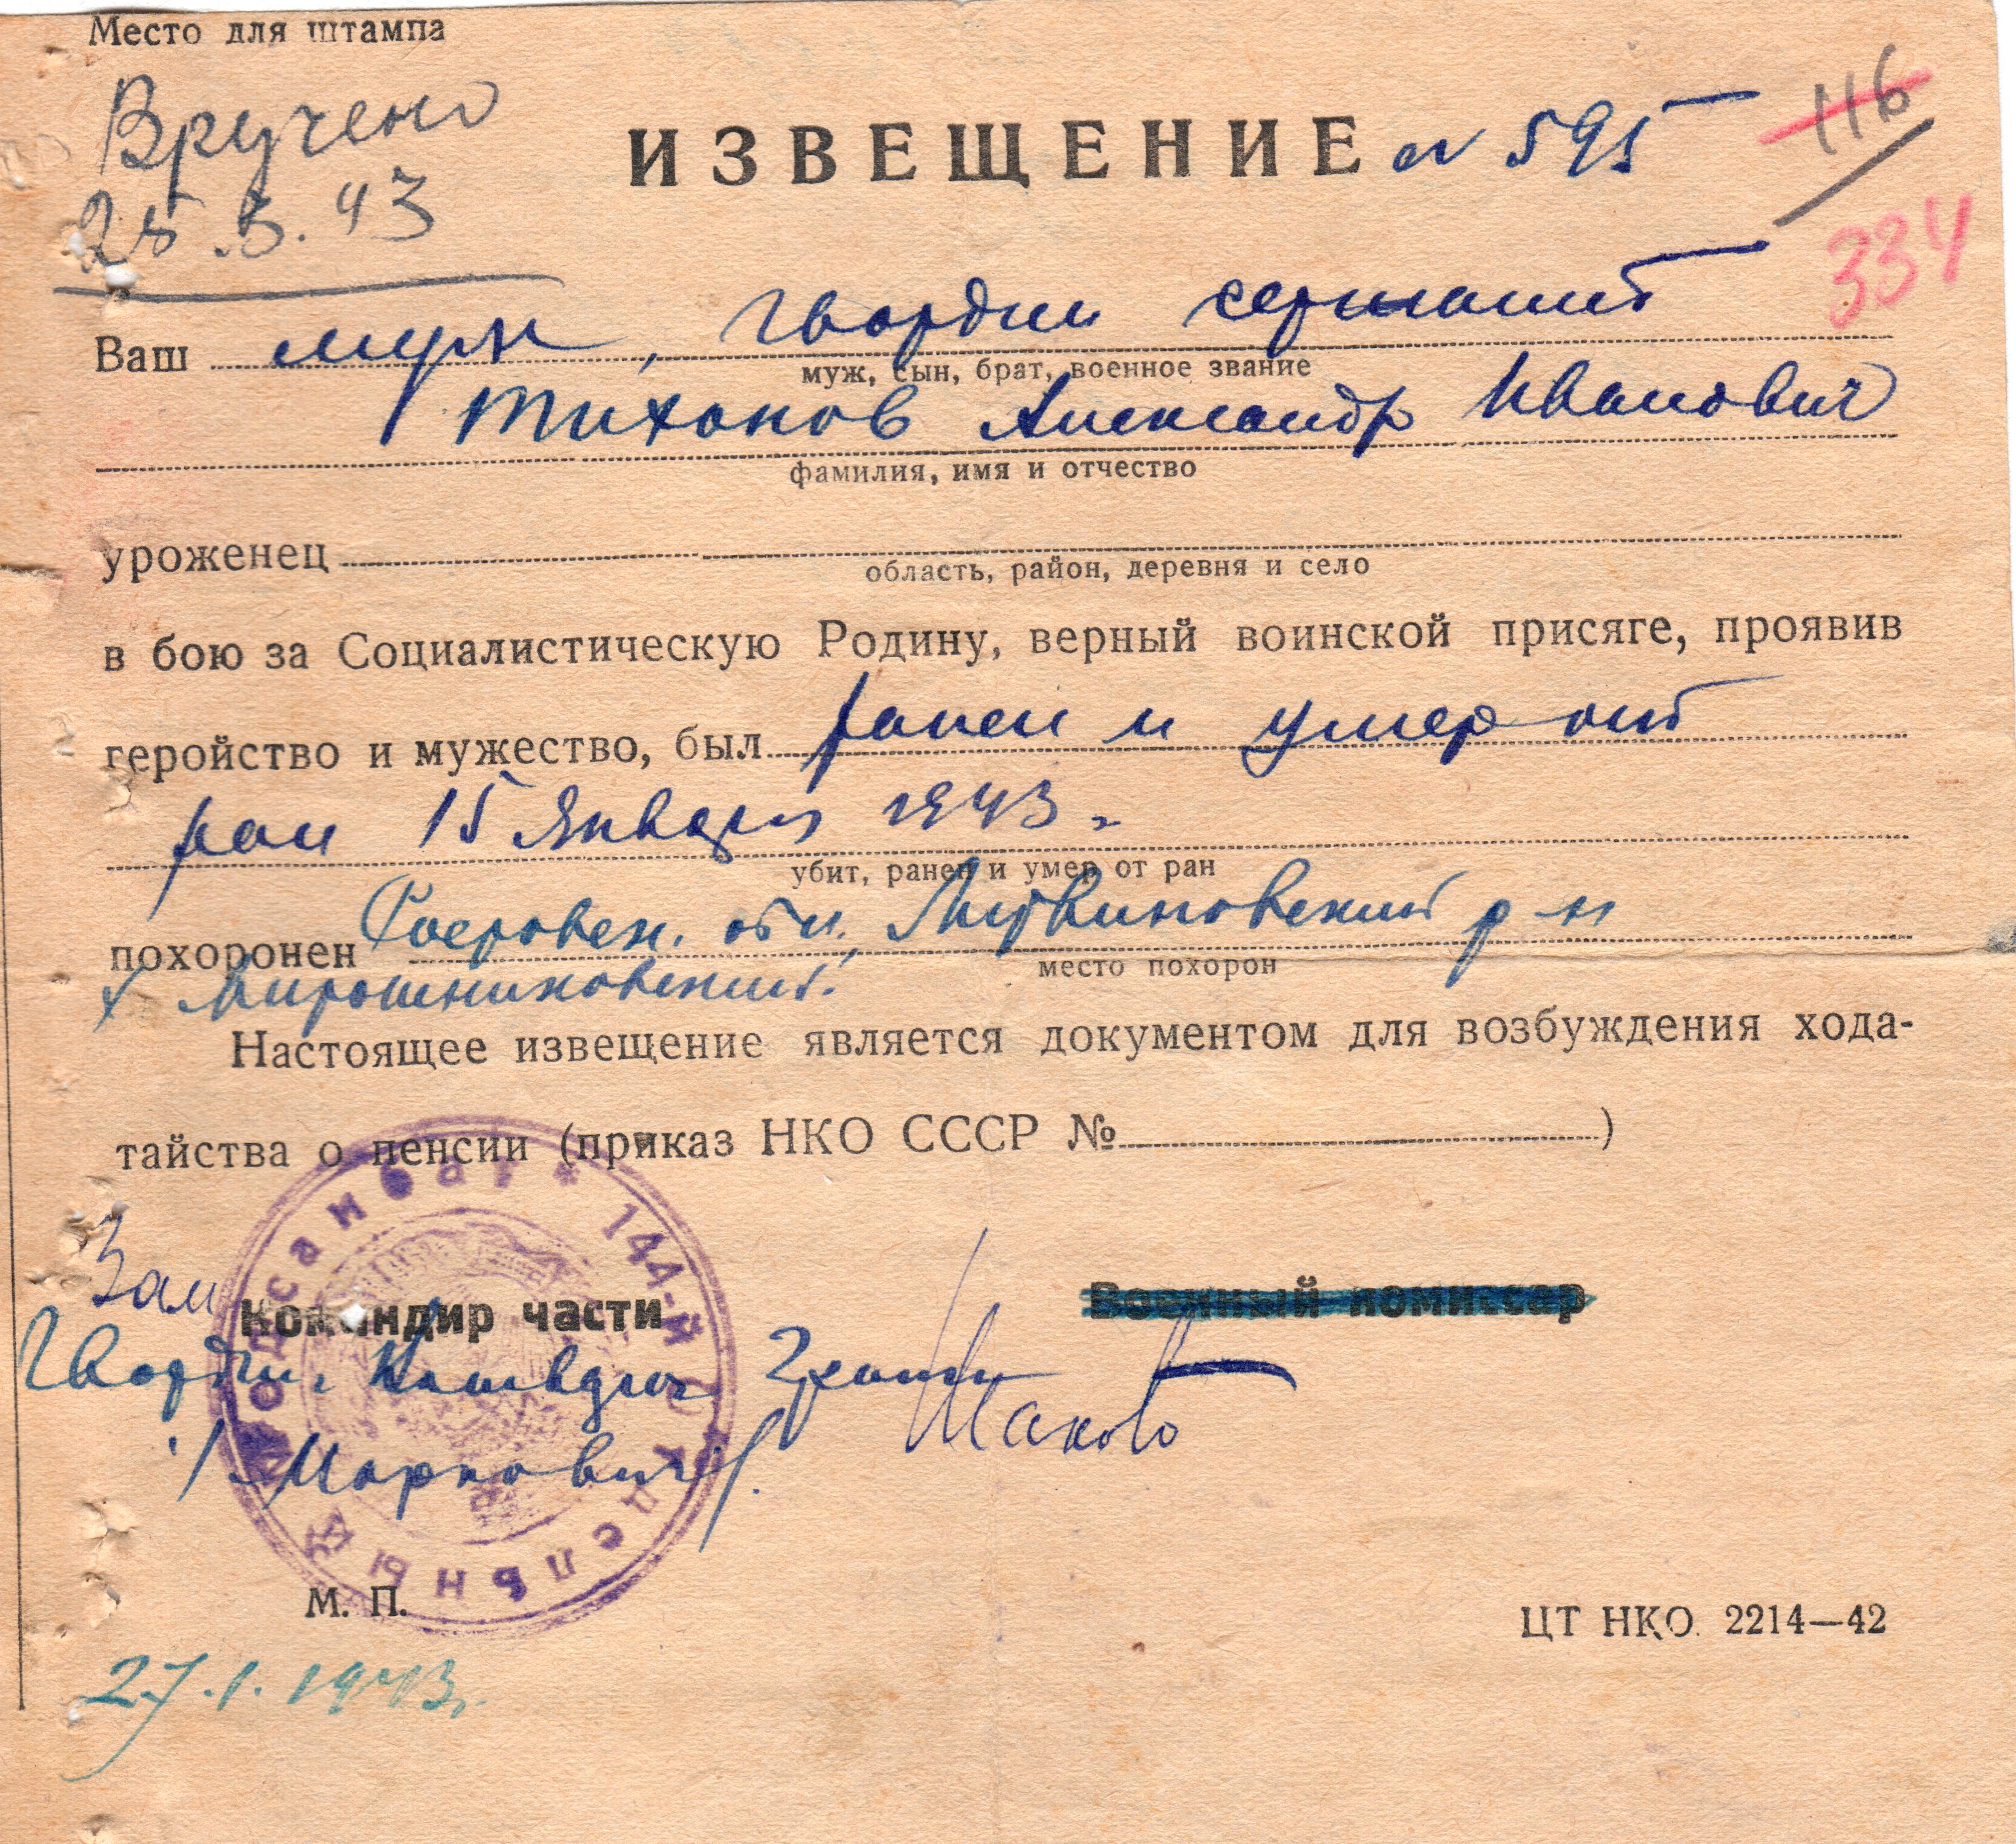 Место для штампа
Вручено
25.3.43
ИЗВЕЩЕНИЕ № 595
116
334
Ваш муж, гвардии сержант
муж, сын, брат, военное звание
Тихонов Александр Иванович
фамилия, имя и отчество
уроженец
область, район, деревня и село
в бою за Социалистическую Родину, верный воинской присяге, проявив
геройство и мужество, был ранен и умер от
ран 15 января 1943.
убит, ранен и умер от ран
похоронен Ростовск. обл., Литвиновский р-н
место похорон
х Мирошниковский.
Настоящее извещение является документом для возбуждения хода-
тайства о пенсии (приказ НКО СССР №)
144-й Отдельный Медсанбат *
Зам Командир части
Военный комиссар
Гвардии
/Маркович/.
М. П.
ЦТ НКО 2214—42
27.1.1943.